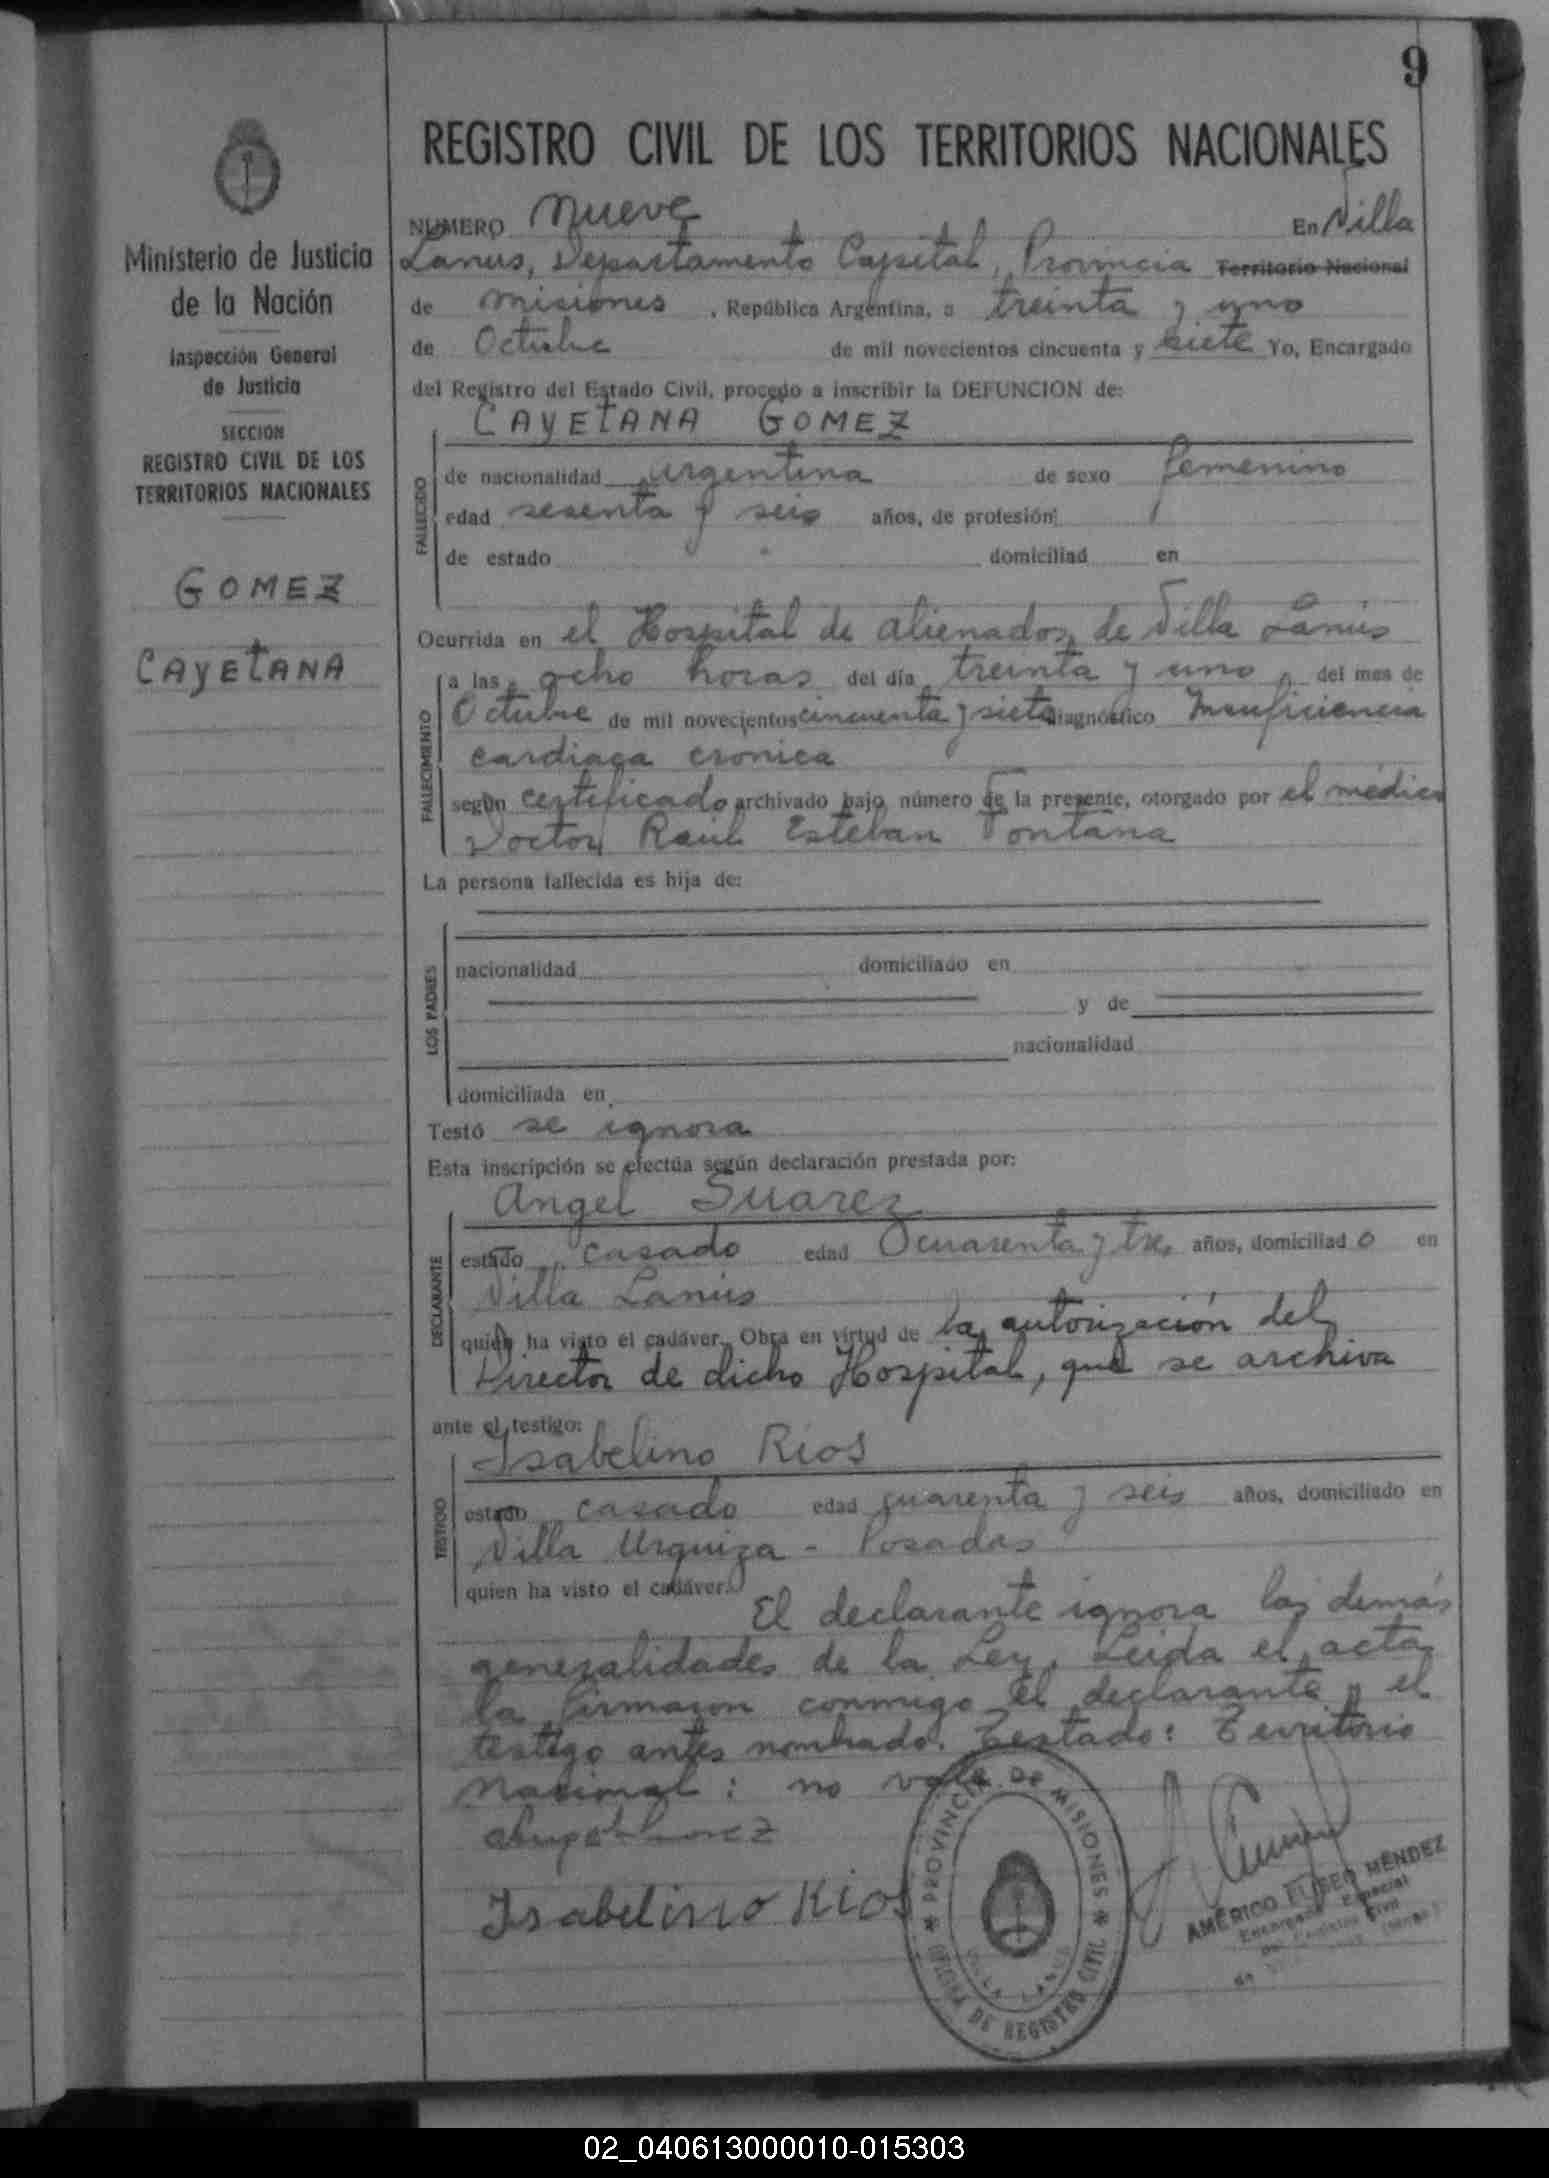 9
REGISTRO CIVIL DE LOS TERRITORIOS NACIONALES
Ministerio de Justicia
de la Nación
Inspección General
de Justicia
SECCION
REGISTRO CIVIL DE LOS
TERRITORIOS NACIONALES
GOMEZ
CAYETANA
NUMERO Nueve En Villa
Lanus, Departamento Capital, Provincia Territorio Nacional
de Misiones, República Argentina, a treinta y uno
de Octubre de mil novecientos cincuenta y siete Yo, Encargado
del Registro del Estado Civil, procedo a inscribir la DEFUNCION de:
CAYETANA GOMEZ
FALLECIDO
de nacionalidad argentina de sexo femenino
edad sesenta y seis años, de profesión
de estado domiciliad en
Ocurrida en el Hospital de Alienados de Villa Lanús
FALLECIMIENTO
a las ocho horas del día treinta y uno del mes de
Octubre de mil novecientos cincuenta y siete diagnóstico Insuficiencia
cardiaca cronica
según certificado archivado bajo número de la presente, otorgado por el médico
Doctor Raúl Esteban Fontana
La persona fallecida es hija de:
LOS PADRES
nacionalidad domiciliado en
y de
nacionalidad
domiciliada en
Testó se ignora
Esta inscripción se efectúa según declaración prestada por:
Angel Suarez
DECLARANTE
estado casado edad cuarenta y tres años, domiciliado en
Villa Lanús
quien ha visto el cadáver. Obra en virtud de la autorización del
Director de dicho Hospital, que se archiva
ante el testigo:
Isabelino Rios
TESTIGO
estado casado edad cuarenta y seis años, domiciliado en
Villa Urquiza - Posadas
quien ha visto el cadáver.
El declarante ignora las demás
generalidades de la Ley. Leida el acta
la firmaron conmigo el declarante y el
testigo antes nombrado. Testado: Territorio
Nacional: no vale
Isabelino Rios
PROVINCIA DE MISIONES
OFICINA DE REGISTRO CIVIL
VILLA LANUS
AMÉRICO ELISEO MÉNDEZ
Encargado Especial
del Registro Civil
02_040613000010-015303